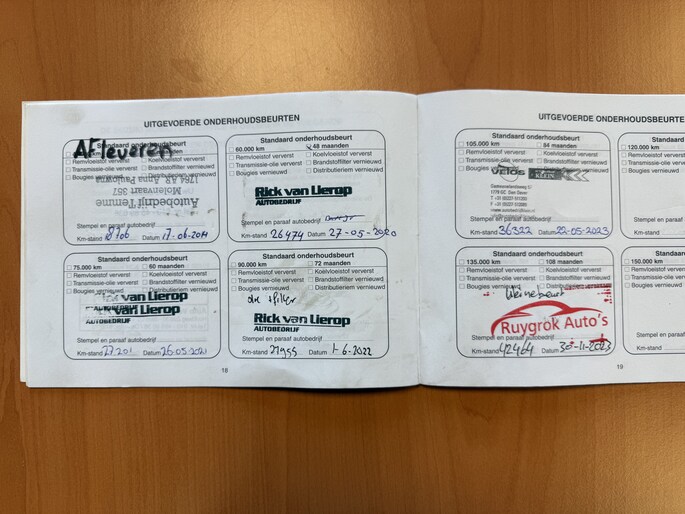 UITGEVOERDE ONDERHOUDSBEURTEN
Standaard onderhoudsbeurt
Afleveren
Remvloeistof ververst
Koelvloeistof ververst
Transmissie-olie ververst
Brandstoffilter vernieuwd
Bougies vernieuwd
Autobedrijf Tenme
Molenvaart 357
1764 AR Anna Paulowna
Stempel en paraaf autobedrijf
Km-stand 8706 Datum 17-06-2019
Standaard onderhoudsbeurt
60.000 km 48 maanden
Remvloeistof ververst Koelvloeistof ververst
Transmissie-olie ververst Brandstoffilter vernieuwd
Bougies vernieuwd Distributieriem vernieuwd
Rick van Lierop
AUTOBEDRIJF
Stempel en paraaf autobedrijf
Km-stand 26474 Datum 27-05-2020
Standaard onderhoudsbeurt
75.000 km 60 maanden
Remvloeistof ververst Koelvloeistof ververst
Transmissie-olie ververst Brandstoffilter vernieuwd
Bougies vernieuwd Distributieriem vernieuwd
Rick van Lierop
van Lierop
AUTOBEDRIJF
Stempel en paraaf autobedrijf
Km-stand 27.201 Datum 26-05-2021
Standaard onderhoudsbeurt
90.000 km 72 maanden
Remvloeistof ververst Koelvloeistof ververst
Transmissie-olie ververst Brandstoffilter vernieuwd
Bougies vernieuwd Distributieriem vernieuwd
Rick van Lierop
AUTOBEDRIJF
Stempel en paraaf autobedrijf
Km-stand Datum 1-6-2022
18
UITGEVOERDE ONDERHOUDSBEURTEN
Standaard onderhoudsbeurt
105.000 km 84 maanden
Remvloeistof ververst Koelvloeistof ververst
Transmissie-olie ververst Brandstoffilter vernieuwd
Bougies vernieuwd
VEIOS KLEIN
Stempel en paraaf autobedrijf
Km-stand 36322 Datum 22-05-2023
120.000 km
Remvloeistof
Transmissie-
Bougies ver
Stempel en pa
Km-stand
Standaard onderhoudsbeurt
135.000 km 108 maanden
Remvloeistof ververst Koelvloeistof ververst
Transmissie-olie ververst Brandstoffilter vernieuwd
Bougies vernieuwd Distributieriem vernieuwd
Kleine beurt
Ruygrok Auto's
Stempel en paraaf autobedrijf
Km-stand 42464 Datum 30-11-2023
150.000 km
Remvloeistof
Transmissie-
Bougies ver
Stempel en pa
Km-stand
19